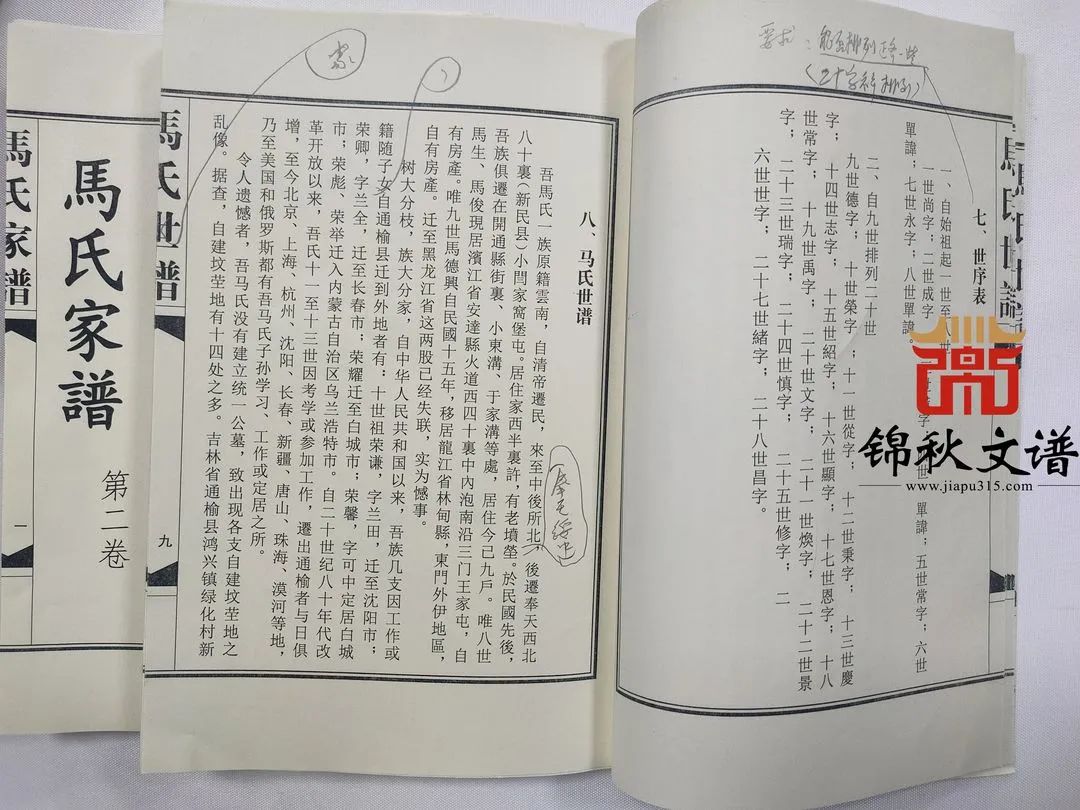 要求：能否排列整齐一些
（二十字辈排列）
馬氏世譜
七、世序表
一、自始祖起一世至八世
一世尚字；二世成字 世 單諱；五世常字；六世
單諱；七世永字，八世單諱。
二、自九世排列二十世
九世德字；十世榮字；十一世從字；十二世秉字；十三世慶
字；十四世志字；十五世紹字；十六世顯字；十七世恩字；十八
世常字；十九世萬字；二十世文字；二十一世煥字；二十二世景
字；二十三世瑞字；二十四世慎字；二十五世修字；二
六世世字；二十七世緒字；二十八世昌字。
八、马氏世谱
吾馬氏一族原籍雲南，自清帝遷民，來至中後所北，後遷奉天西北
八十裏（新民县）小閆家窩堡屯。居住家西半裏許，有老墳塋。於民國先後，
吾族俱遷在開通縣街裏、小東溝、于家溝等處，居住今已九戶。唯八世
馬生、馬俊現居濱江省安達縣火道西四十裏中內泡南沿三门王家屯，自
有房產。唯九世馬德興自民國十五年，移居龍江省林甸縣，東門外伊地區，
自有房產。迁至黑龙江省这两股已经失联，实为憾事。
树大分枝，族大分家，自中华人民共和国以来，吾族几支因工作或
籍随子女自通榆县迁到外地者有：十世祖荣谦，字兰田，迁至沈阳市；
荣卿，字兰全，迁至长春市；荣耀迁至白城市；荣馨，字可中定居白城
市；荣彪、荣举迁入内蒙古自治区乌兰浩特市。自二十世纪八十年代改
革开放以来，吾氏十一至十三世因考学或参加工作，遷出通榆者与日俱
增，至今北京、上海、杭州、沈阳、长春、新疆、唐山、珠海、漠河等地，
乃至美国和俄罗斯都有吾马氏子孙学习、工作或定居之所。
令人遗憾者，吾马氏没有建立统一公墓，致出现各支自建坟茔地之
乱像。据查，自建坟茔地有十四处之多。吉林省通榆县鸿兴镇绿化村新
馬氏世譜
九
馬氏家譜
第二卷
馬氏家譜
一
锦秋文谱
www.jiapu315.com